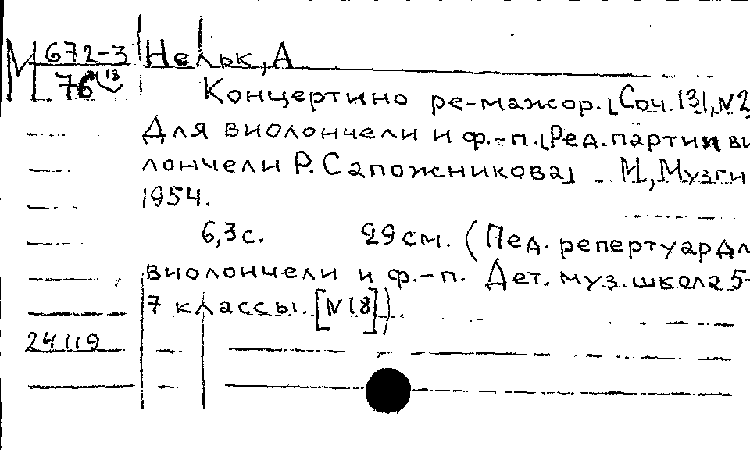 М 672-3 Нельк, А
76
Концертино ре-мажор. [Соч. 13], №2
Для виолончели и ф.-п. [Ред. партии ви
лончели Р. Сапожникова] М, Музги
1954.
6,3 с. 29 см. (Пед. репертуар дл
виолончели и ф.-п. Дет. муз. школа 5-
7 классы. [№18])
24119